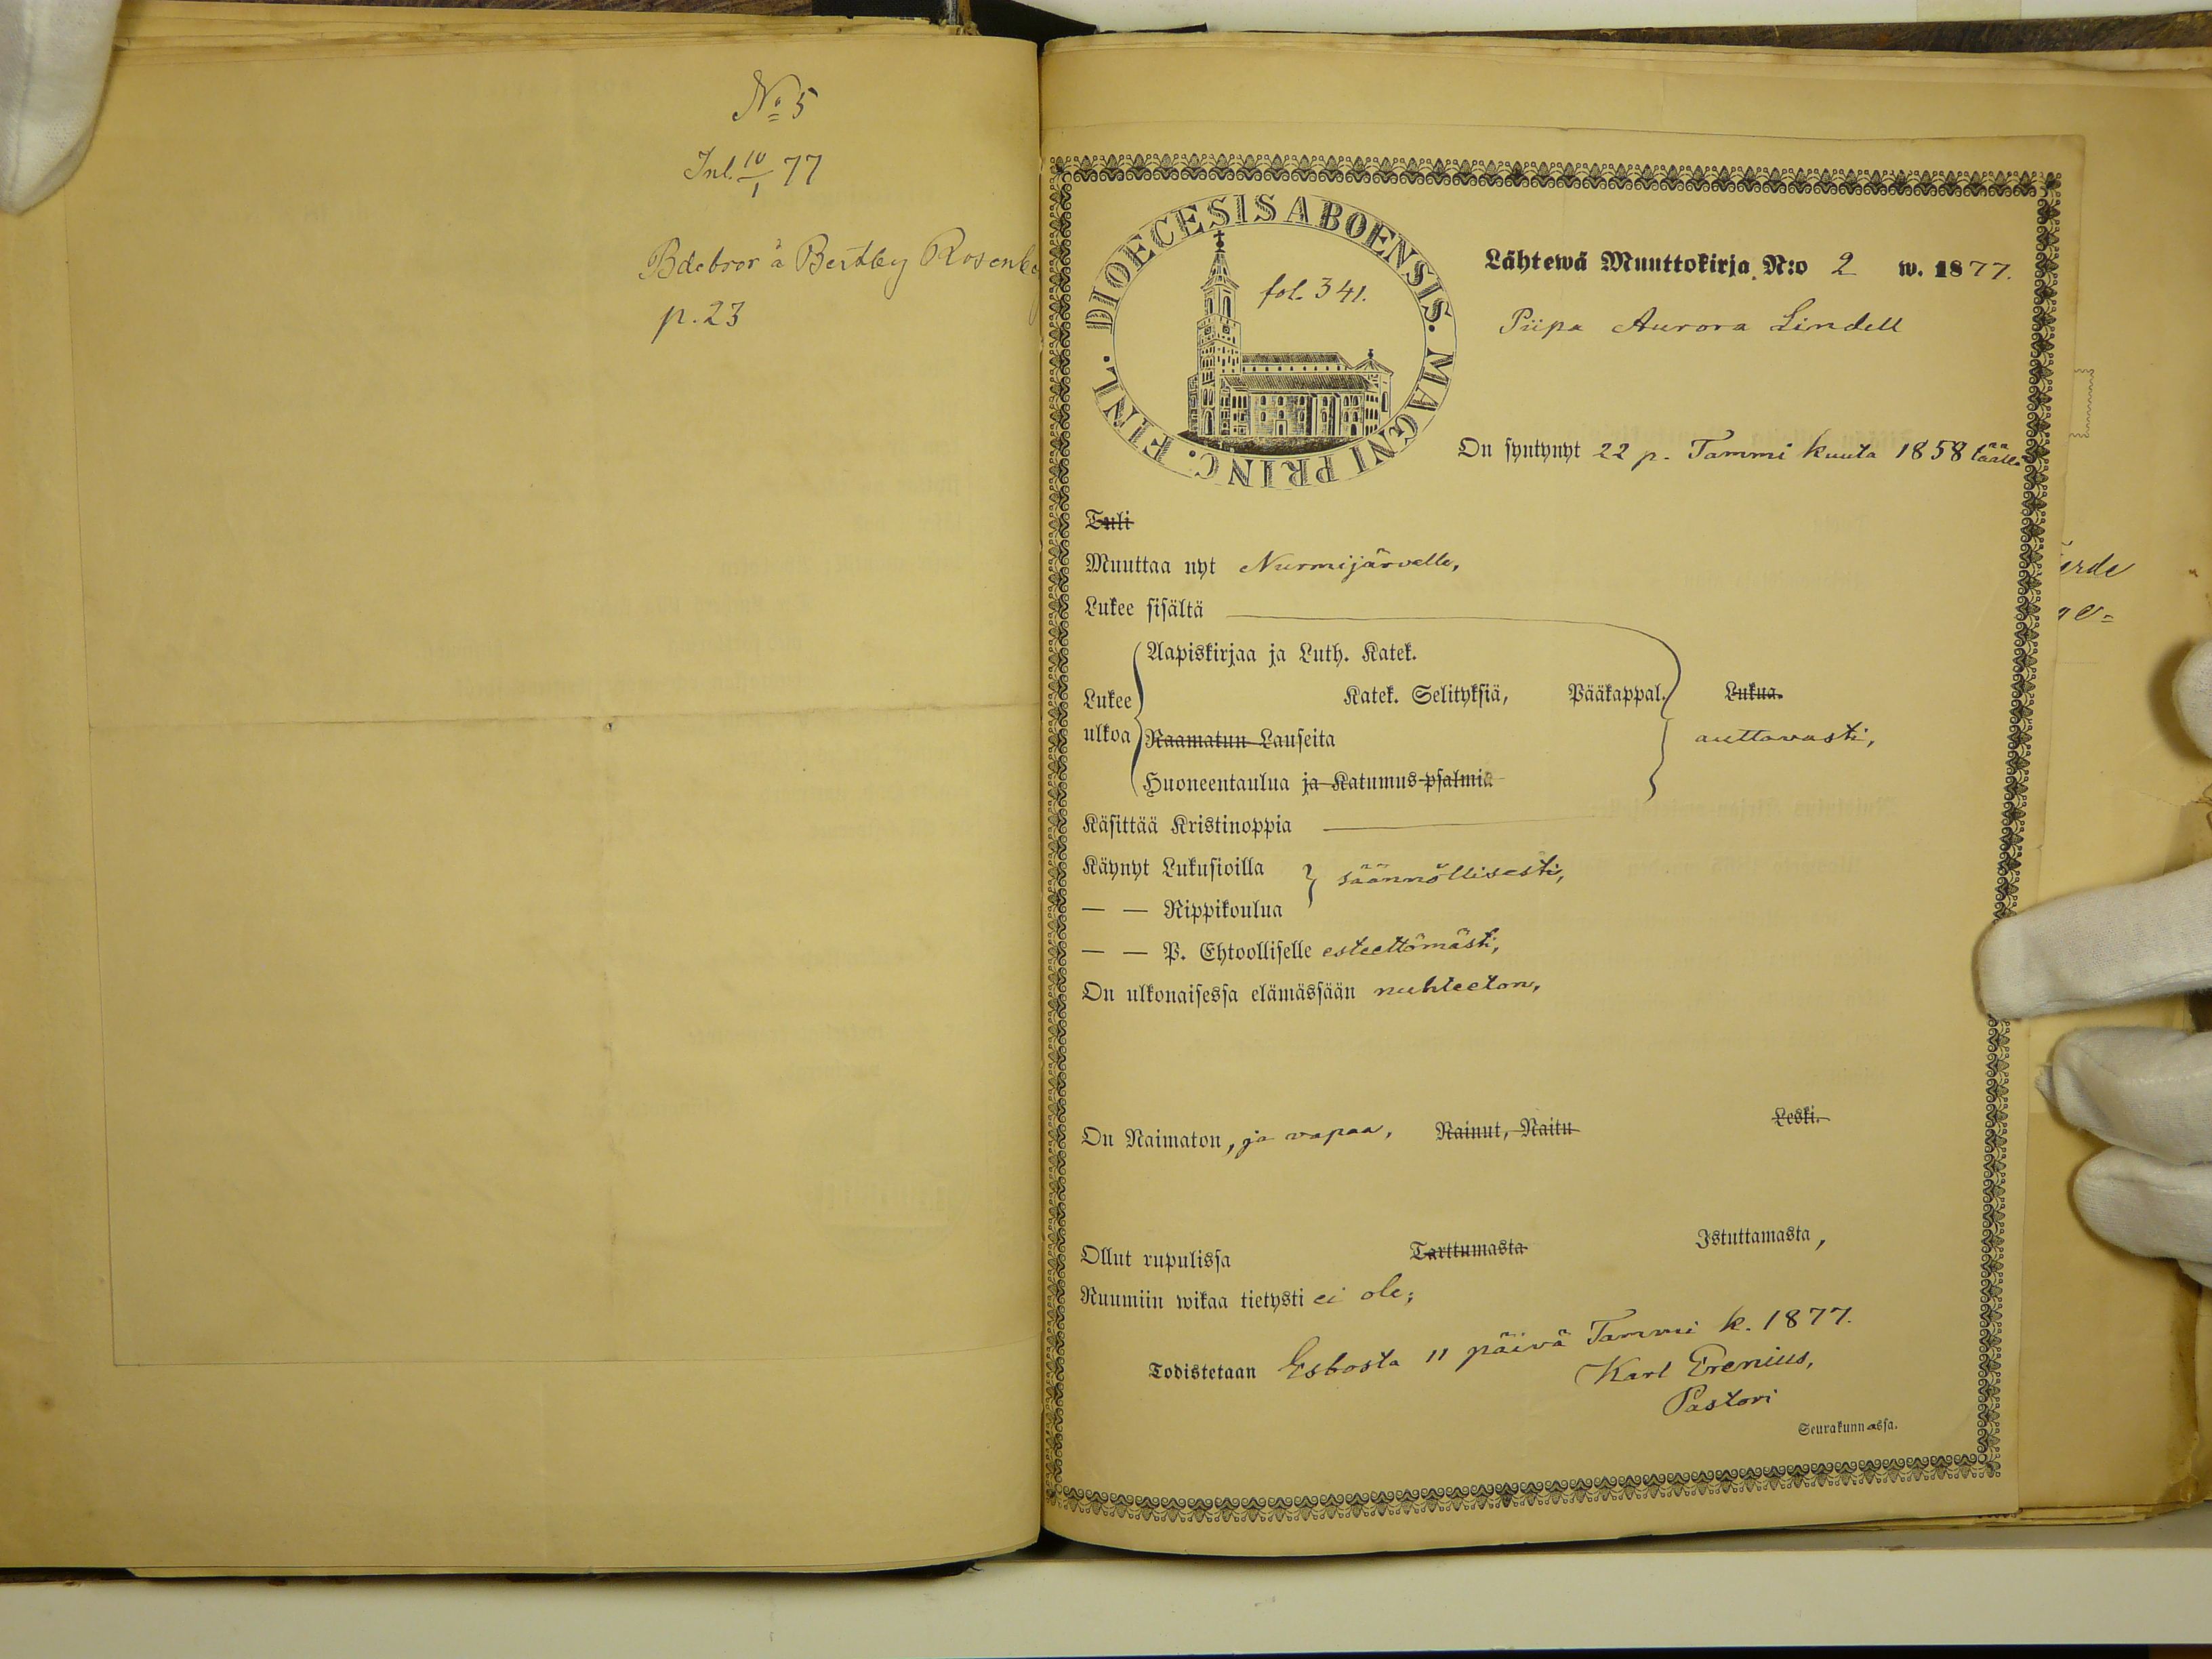 No 5
Inl. 10/1 77
Bdebror å Bertby Rosenbe
p. 23
DIOECESIS ABOENSIS. MAGNI PRINC: FINL.
fol. 341.
Lähtewä Muuttokirja N:o 2 w. 1877.
Piipa Aurora Lindell
On syntynyt 22 p. Tammi kuuta 1858 täällä
Tuli
Muuttaa nyt Nurmijärvelle,
Lukee sisältä
Aapiskirjaa ja Luth. Katek.
Lukee ulkoa
Katek. Selityksiä, Pääkappal. Lukua.
Raamatun Lauseita auttavasti,
Huoneentaulua ja Katumus-psalmia
Käsittää Kristinoppia
Käynyt Lukusioilla säännöllisesti,
— — Rippikoulua
— — P. Ehtoolliselle esteettömästi,
On ulkonaisessa elämässään nuhteeton,
On Naimaton, ja vapaa, Nainut, Naitu Leski.
Ollut rupulissa Tarttumasta Istuttamasta,
Ruumiin wikaa tietysti ei ole;
Todistetaan Esbosta 11 päivä Tammi k. 1877.
Karl Erenius,
Pastori
Seurakunnassa.
erde